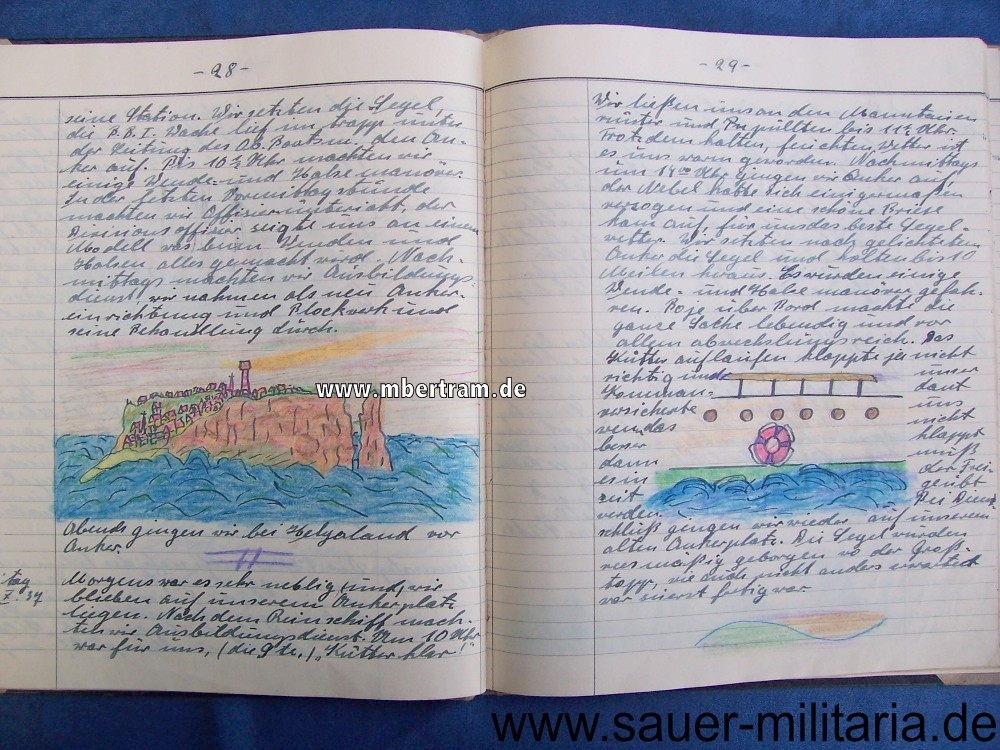 - 28 -
seine Station. Wir setzten die Segel,
die B.B.I. Wache lief im trapp unter
der Leitung des Ob. Bootsm. den An-
ker auf. Bis 10½ Uhr machten wir
einige Wende- und Halsemanöver.
In der letzten Vormittagsstunde
machten wir Offizierunterricht, der
Divisionsoffizier zeigte uns an einem
Modell was beim Wenden und
Halsen alles gemacht wird. Nach-
mittags machten wir Ausbildungs-
dienst, wir nahmen als neu Anker-
einrichtung und Blockwerk und
seine Behandlung durch.
www.mbertram.de
Abends gingen wir bei Helgoland vor
Anker.
tag
X. 37
Morgens war es sehr neblig und wir
blieben auf unserem Ankerplatz
liegen. Nach dem Reinschiff mach-
ten wir Ausbildungsdienst. Um 10 Uhr
war für uns, (die 9te,) „Kutter klar!"
- 29 -
Wir ließen uns an den Manntauen
runter und pullten bis 11½ Uhr.
Trotz dem kalten, feuchten Wetter ist
es uns warm geworden. Nachmittags
um 14⁰⁰ Uhr gingen wir Anker auf,
der Nebel hatte sich einigermaßen
verzogen und eine schöne Briese
kam auf, für uns das beste Segel-
wetter. Wir setzten nach gelichteten
Anker die Segel und halten bis 10
Meilen heraus. Es wurden einige
Wende- und Halsemanöver gefah-
ren. Boje über Bord machte die
ganze Sache lebendig und vor
allem abwechslungsreich. Das
Kutter auflaufen klappte ja nicht
richtig und unser
Komman- dant
versicherte uns
wen das nicht
besser klappt
dann muß
es in der Frei-
zeit geübt
werden. Bei Dienst-
schluß gingen wir wieder auf unserem
alten Ankerplatz. Die Segel wurden
reesmäßig geborgen wo der Groß-
topp, wie auch nicht anders erwartet
war zuerst fertig war.
www.sauer-militaria.de